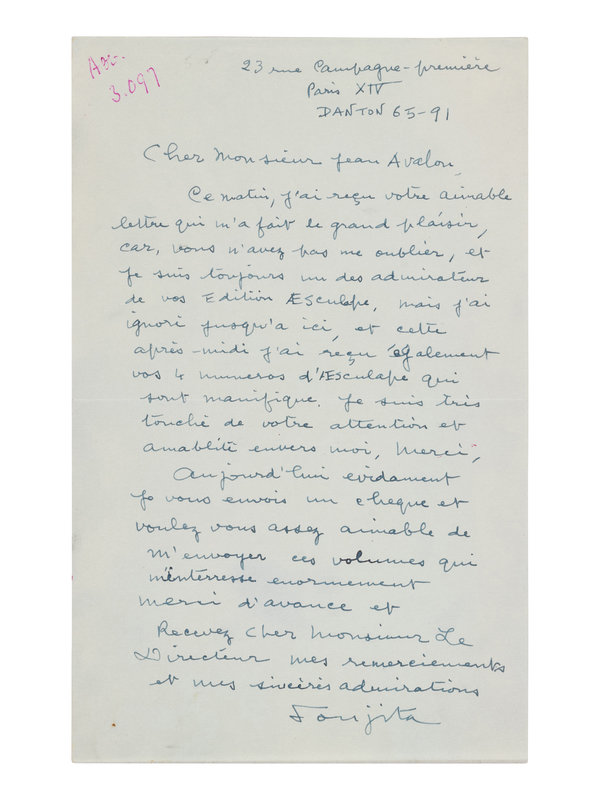 Acc.
3.097
23 rue Campagne-première
Paris XIV
DANTON 65-91
Cher Monsieur Jean Avalon,
Ce matin, j'ai reçu votre aimable
lettre qui m'a fait le grand plaisir,
car, vous n'avez pas me oublier, et
je suis toujours un des admirateur
de vos Edition ÆSCULAPE, mais j'ai
ignori jusqu'a ici, et cette
après-midi j'ai reçu également
vos 4 numeros d'ÆSCULAPE qui
sont manifique. Je suis tris
touché de votre attention et
amabliti envers moi, Merci,
Aujourd'hui évidament
Je vous envois un cheque et
voulez vous assez aimable de
m'envoyer ces volumes qui
m'interresse enormement
merci d'avance et
Recevez Cher Monsieur Le
Directeur mes remerciements
et mes sincères admirations
Foujita